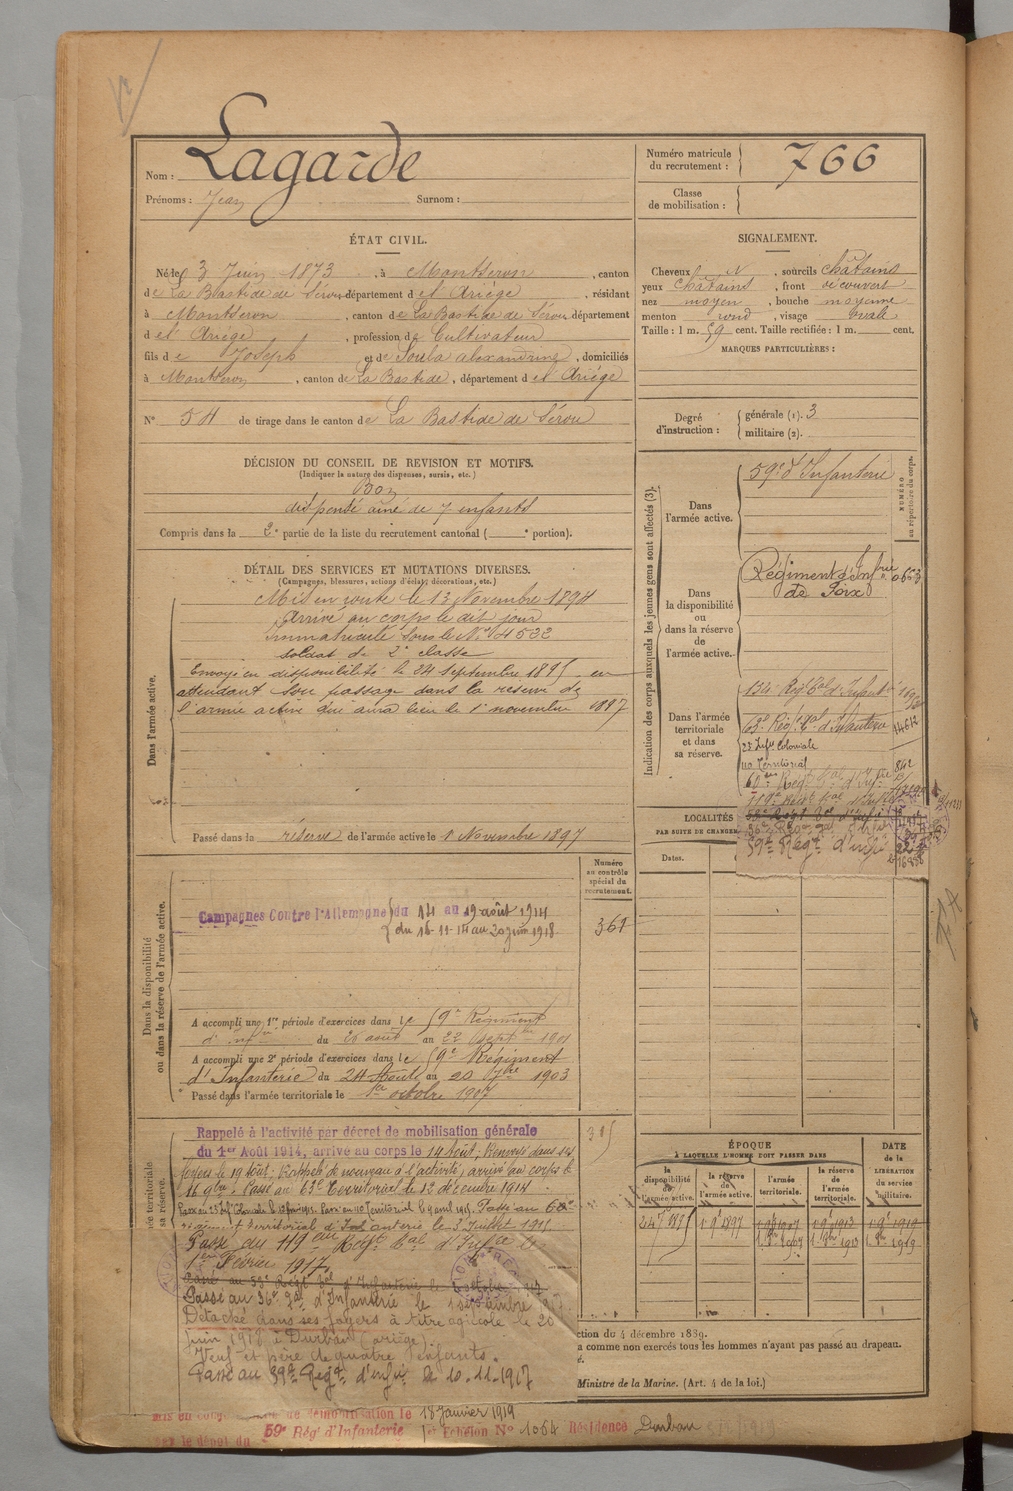 Nom : Lagarde
Prénoms : Jean Surnom :
Numéro matricule du recrutement : 766
Classe de mobilisation :
ÉTAT CIVIL.
Né le 3 Juin 1873, à Montseron, canton
de La Bastide de Sérou département d el Ariège, résidant
à Montseron, canton de La Bastide de Sérou département
d el Ariège, profession de Cultivateur
fils de Joseph et de Soula alexandrine, domiciliés
à Montseron, canton de La Bastide, département d el Ariège
N° 54 de tirage dans le canton de La Bastide de Sérou
SIGNALEMENT.
Cheveux N, sourcils châtains
yeux châtains, front découvert
nez moyen, bouche moyenne
menton rond, visage ovale
Taille : 1 m. 59 cent. Taille rectifiée : 1 m. cent.
MARQUES PARTICULIÈRES :
Degré d'instruction : générale (1). 3
militaire (2).
DÉCISION DU CONSEIL DE REVISION ET MOTIFS.
(Indiquer la nature des dispenses, sursis, etc.)
Bon
dispensé ainé de 7 enfants
Compris dans la 2e partie de la liste du recrutement cantonal ( e portion).
DÉTAIL DES SERVICES ET MUTATIONS DIVERSES.
(Campagnes, blessures, actions d'éclat, décorations, etc.)
Dans l'armée active.
Mis en route le 13 Novembre 1894
Arrivé au corps le dit jour
Immatriculé sous le N° 4522
soldat de 2e classe
Envoyé en disponibilité le 24 septembre 1895 en
attendant son passage dans la réserve de
l'armée active qui aura lieu le 1 novembre 1897
Passé dans la réserve de l'armée active le 1 Novembre 1897
Indication des corps auxquels les jeunes gens sont affectés (3).
NUMÉRO au répertoire du corps.
Dans l'armée active.
59e d'Infanterie
Dans la disponibilité ou dans la réserve de l'armée active.
Régiment d'Infrie
de Foix
Dans l'armée territoriale et dans sa réserve.
134 Régt tal d'Infant
63e Régt tal d'Infanterie 14612
23 Infie Coloniale
110 Territorial
60ème Régt tal d'Inf
119e Régt tal d'Inf
59e Régt d'infie
LOCALITÉS
PAR SUITE DE CHANGEM
Dates.
Dans la disponibilité ou dans la réserve de l'armée active.
Numéro au contrôle spécial du recrutement.
361
Campagnes Contre l'Allemagne du 14 au 19 août 1914
du 16-11-14 au 20 juin 1918.
A accompli une 1re période d'exercices dans le 59e Régiment
d'infie du 26 août au 22 Septbre 1901
A accompli une 2e période d'exercices dans le 59e Régiment
d'Infanterie du 24 Août au 20 7bre 1903
Passé dans l'armée territoriale le 1er octobre 1907
ée territoriale
sa réserve.
Rappelé à l'activité par décret de mobilisation générale
du 1er Août 1914, arrivé au corps le 14 Août; Renvoyé dans ses
foyers le 19 Août; Rappelé de nouveau à l'activité, arrivé au corps le
16 9bre. Passé au 63e Territorial le 12 décembre 1914
Passé au 110 Territorial le 9 avril 1915. Passé au 60e
régiment Territorial d'Infanterie le 3 Juillet 1915
Passé au 119ème Régt tal d'Infie le
1er Février 1917
Passé au 36e tal d'Infanterie le
Détaché dans ses foyers à titre agricole le 20
juin 1918 à Durban (ariège).
Veuf et père de quatre enfants.
Passé au 59e Régt d'infie le 10-11-1917
315
ÉPOQUE
À LAQUELLE L'HOMME DOIT PASSER DANS
la disponibilité de l'armée active.
la réserve de l'armée active.
l'armée territoriale.
la réserve de l'armée territoriale.
DATE de la LIBÉRATION du service militaire.
24 7 1895 1 9e 1897
ction du 4 décembre 1889.
a comme non exercés tous les hommes n'ayant pas passé au drapeau.
Ministre de la Marine. (Art. 4 de la loi.)
de démobilisation le 18 Janvier 1919
par le dépôt du 59e Rég' d'Infanterie 1er Echelon N° 1054 Résidence Durban